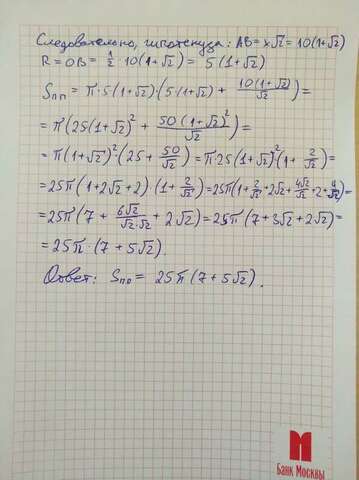 Следовательно, гипотенуза: AB = x√2 = 10(1+√2)
R = OB = 1/2 · 10(1+√2) = 5(1+√2)
Sпп = π·5(1+√2)·(5(1+√2) + 10(1+√2)/√2) =
= π(25(1+√2)² + 50(1+√2)²/√2) =
= π(1+√2)²·(25 + 50/√2) = π·25(1+√2)²(1 + 2/√2) =
= 25π(1+2√2+2)·(1+2/√2) = 25π(1+2/√2+2√2+4√2/√2+2+4/√2) =
= 25π(7 + 6√2/√2·√2 + 2√2) = 25π(7+3√2+2√2) =
= 25π·(7+5√2)
Ответ: Sпп = 25π(7+5√2).
Банк Москвы